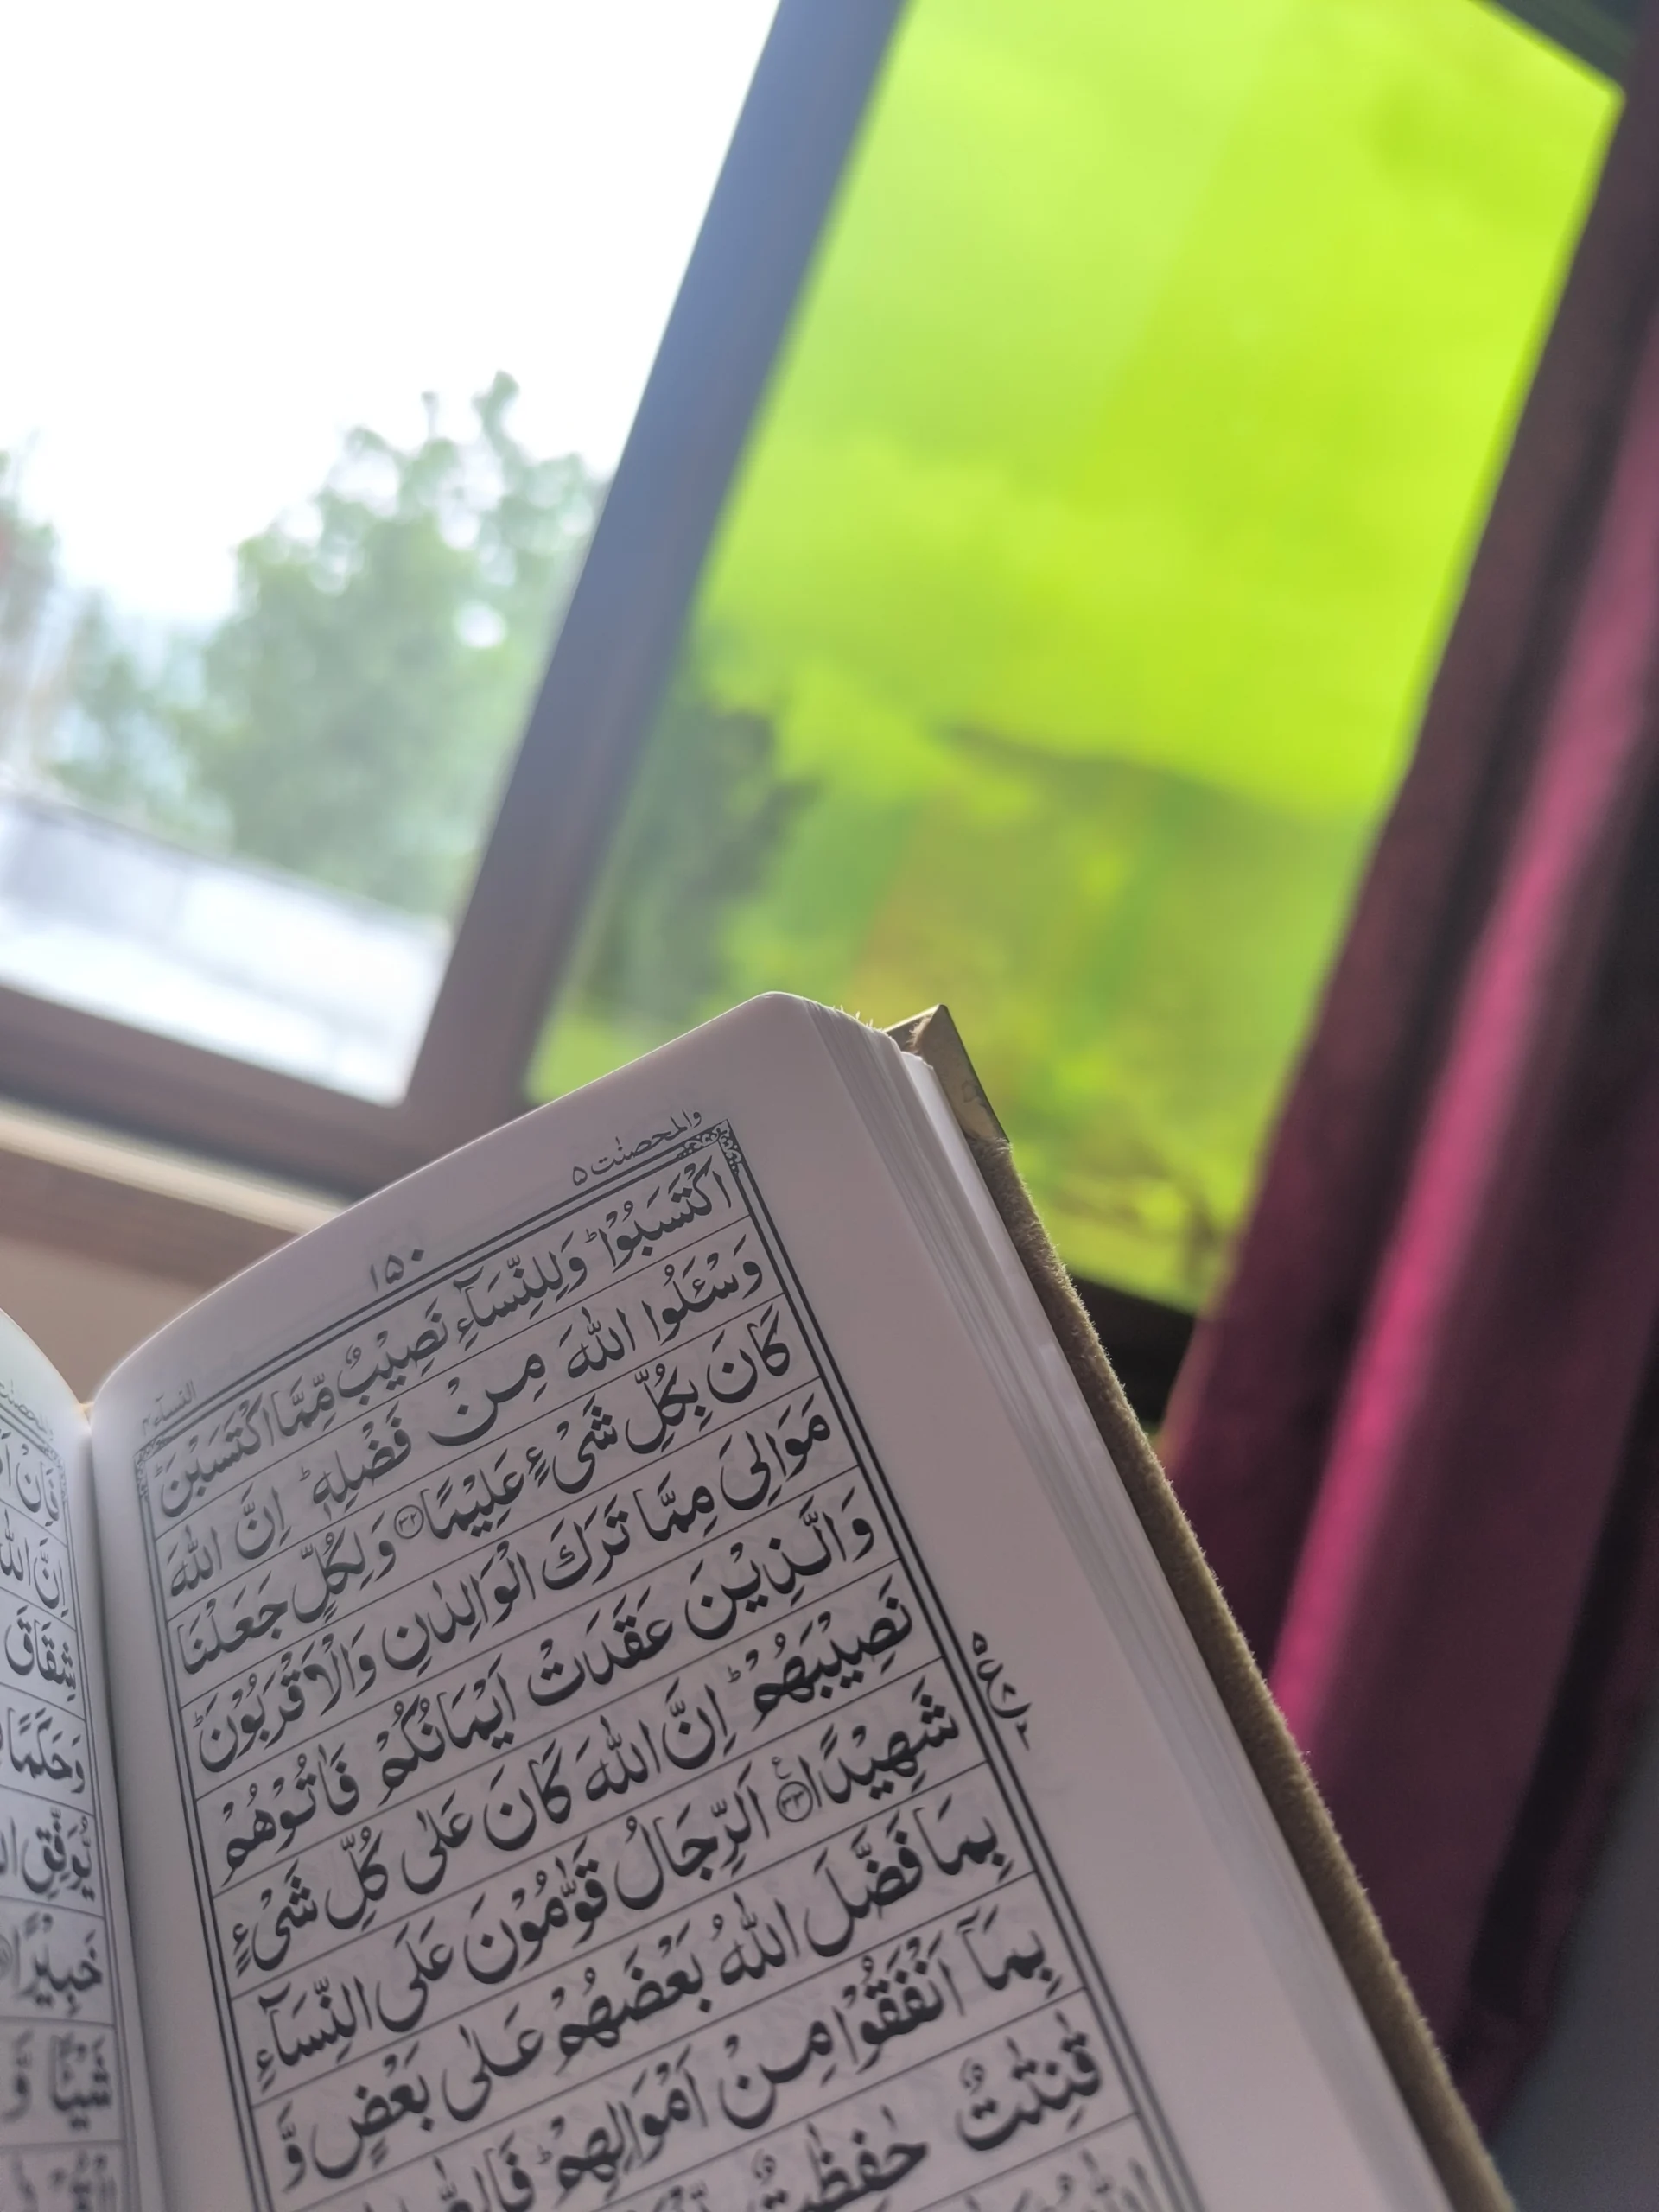 والمحصنٰت ۵
۱۵۰
النسآء ۴
اكْتَسَبُوْا ؕ وَلِلنِّسَآءِ نَصِيْبٌ مِّمَّا اكْتَسَبْنَ ؕ
وَسْـَٔلُوا اللّٰهَ مِنْ فَضْلِهٖ ؕ اِنَّ اللّٰهَ
كَانَ بِكُلِّ شَیْءٍ عَلِيْمًا ﴿۳۲﴾ وَلِكُلٍّ جَعَلْنَا
مَوَالِیَ مِمَّا تَرَكَ الْوَالِدٰنِ وَالْاَقْرَبُوْنَ ؕ
وَالَّذِيْنَ عَقَدَتْ اَيْمَانُكُمْ فَاٰتُوْهُمْ
نَصِيْبَهُمْ ؕ اِنَّ اللّٰهَ كَانَ عَلٰی كُلِّ شَیْءٍ
شَهِيْدًا ﴿۳۳﴾ ع اَلرِّجَالُ قَوّٰمُوْنَ عَلَی النِّسَآءِ
بِمَا فَضَّلَ اللّٰهُ بَعْضَهُمْ عَلٰی بَعْضٍ وَّ
بِمَآ اَنْفَقُوْا مِنْ اَمْوَالِهِمْ ؕ
قٰنِتٰتٌ حٰفِظٰتٌ
اِنَّ اللّٰهَ
شِقَاقَ
وَحَكَمًا
يُّوَفِّقِ
خَبِيْرًا
شَيْـًٔا وَّ